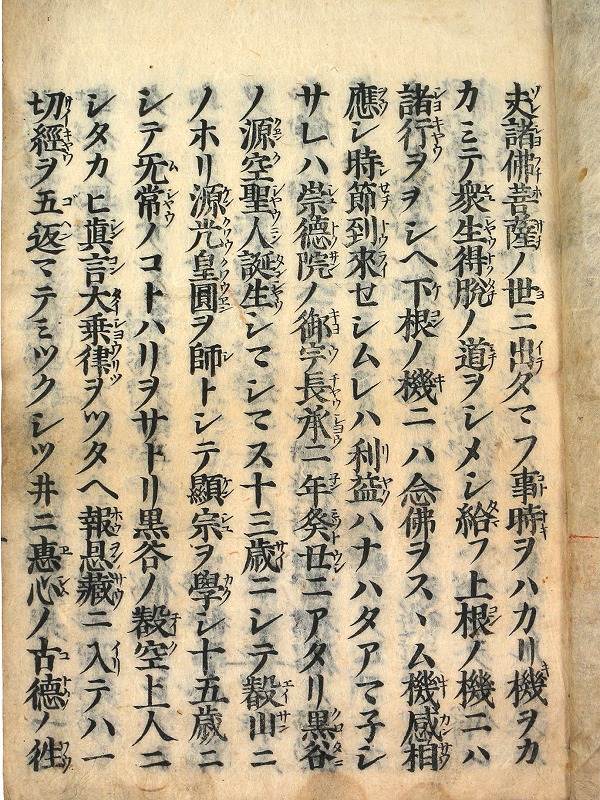 夫諸佛菩薩ノ世ニ出タマフ事時ヲハカリ機ヲカ
カミテ衆生得脱ノ道ヲシメシ給フ上根ノ機ニハ
諸行ヲヲシヘ下根ノ機ニハ念佛ヲスヽム機感相
應シ時節到來セシムレハ利益ハナハタアマ子シ
サレハ崇德院ノ御宇長承二年癸丑ニアタリ黒谷
ノ源空聖人誕生シマシマス十三歳ニシテ叡山ニ
ノホリ源光皇圓ヲ師トシテ顯宗ヲ學シ十五歳ニ
シテ无常ノコトハリヲサトリ黒谷ノ叡空上人ニ
シタカヒ真言大乗律ヲツタヘ報恩藏ニ入テハ一
切經ヲ五返マテミツクシツ井ニ惠心ノ古德ノ徃